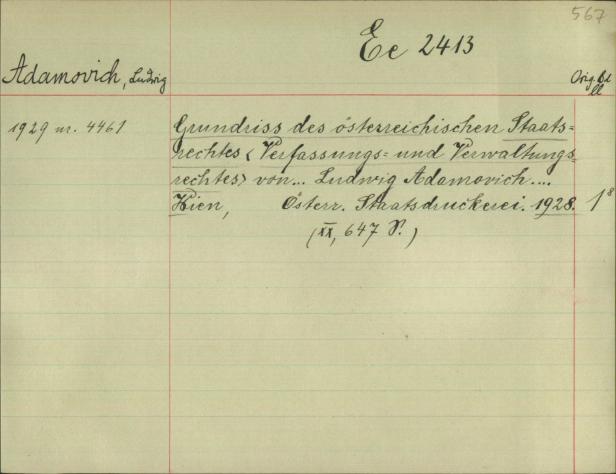 567
Ee 2413
Adamovich, Ludwig
Orig. Bd
1929 nr. 4461
Grundriss des österreichischen Staats=
rechtes <Verfassungs= und Verwaltungs
rechtes> von... Ludwig Adamovich....
Wien, Österr. Staatsdruckerei. 1928. 1 8
(XX, 647 S.)